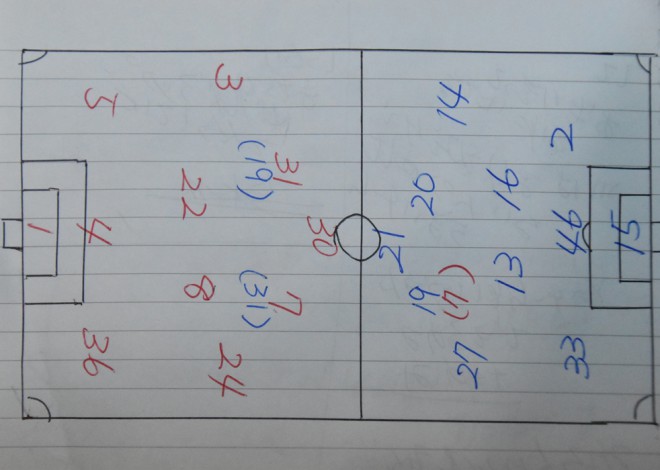 1
5
4
36
3
22
8
24
31
(19)
7
(31)
30
21
14
20
19
27
16
13
2
46
33
15